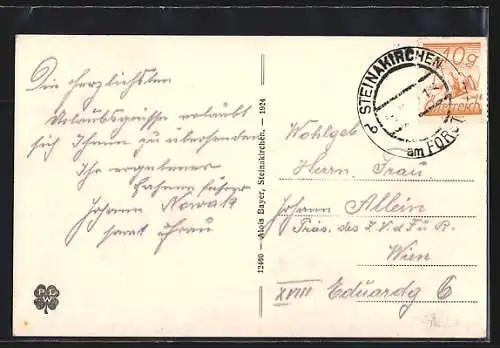 Die herzlichsten
Urlaubsgrüsse erlaubt
sich Ihnen zu übersenden
Ihr ergebener
Johann Nowak
samt Frau
12460 — Alois Bayer, Steinakirchen. — 1924
PLW
STEINAKIRCHEN
am FORST
10g
Österreich
Wohlgeb
Herrn, Frau
Johann Allein
Präs. des Z.V.d.F.u.R.
Wien
XVIII Eduardg 6